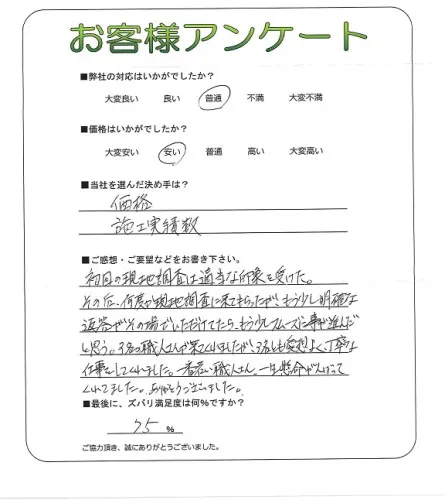 お客様アンケート
■弊社の対応はいかがでしたか?
大変良い 良い 普通 不満 大変不満
■価格はいかがでしたか?
大変安い 安い 普通 高い 大変高い
■当社を選んだ決め手は?
価格
施工実績数
■ご感想・ご要望などをお書き下さい。
初回の現地調査は適当な印象を受けた。
その后、何度か現地調査に来てもらったが、もう少し明確な
返答がその場でいただけてたら、もう少しスムーズに事が進んだ
と思う。3名の職人さんが来てくれましたが、3名とも愛想よく、丁寧な
仕事をしてくれました。一番若い職人さん、一生懸命がんばって
くれてました。ありがとうございました。
■最後に、ズバリ満足度は何%ですか?
75 %
ご協力頂き、誠にありがとうございました。